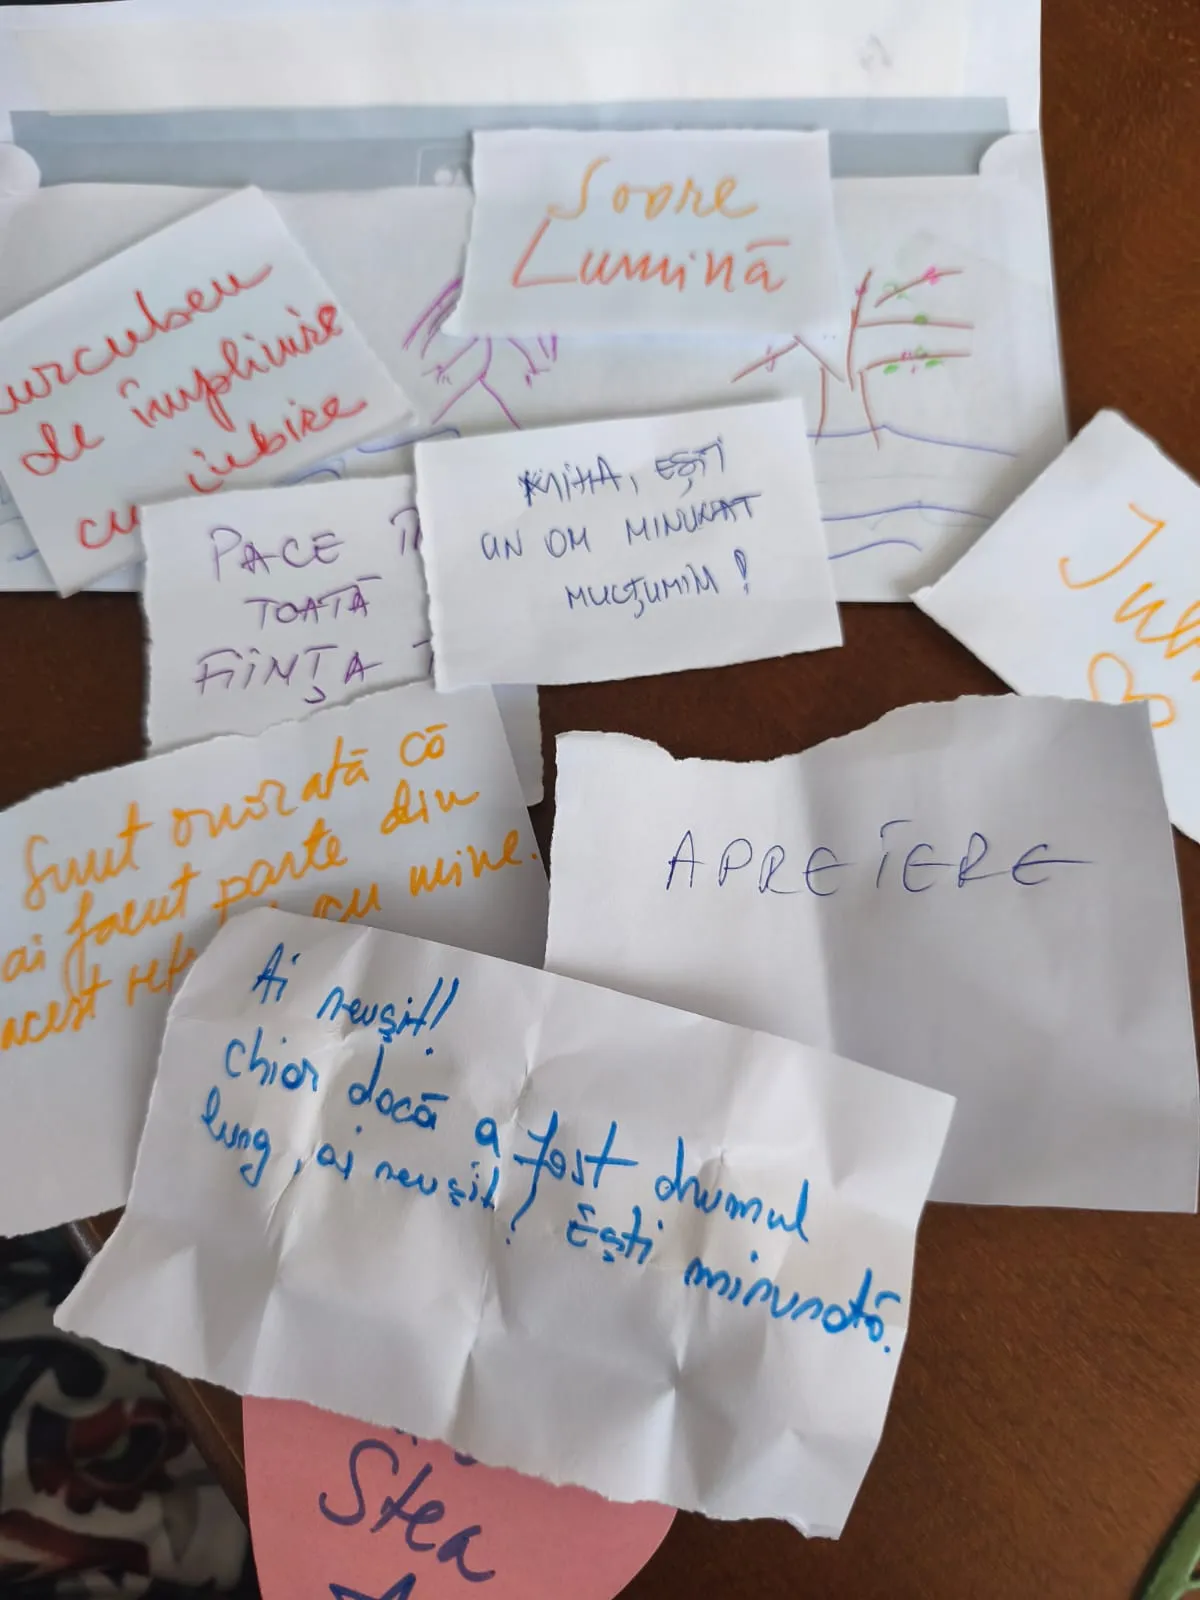 Soare
Lumină
curcubeu
de împlinire
cu iubire
MIHA, EȘTI
UN OM MINUNAT
MULȚUMIM!
PACE ÎN
TOATĂ
FIINȚA
Iub
Sunt onorată că
ai facut parte din
acest cu mine.
APRECIERE
Ai reușit!
Chiar dacă a fost drumul
lung, ai reușit! Ești minunată.
Stea